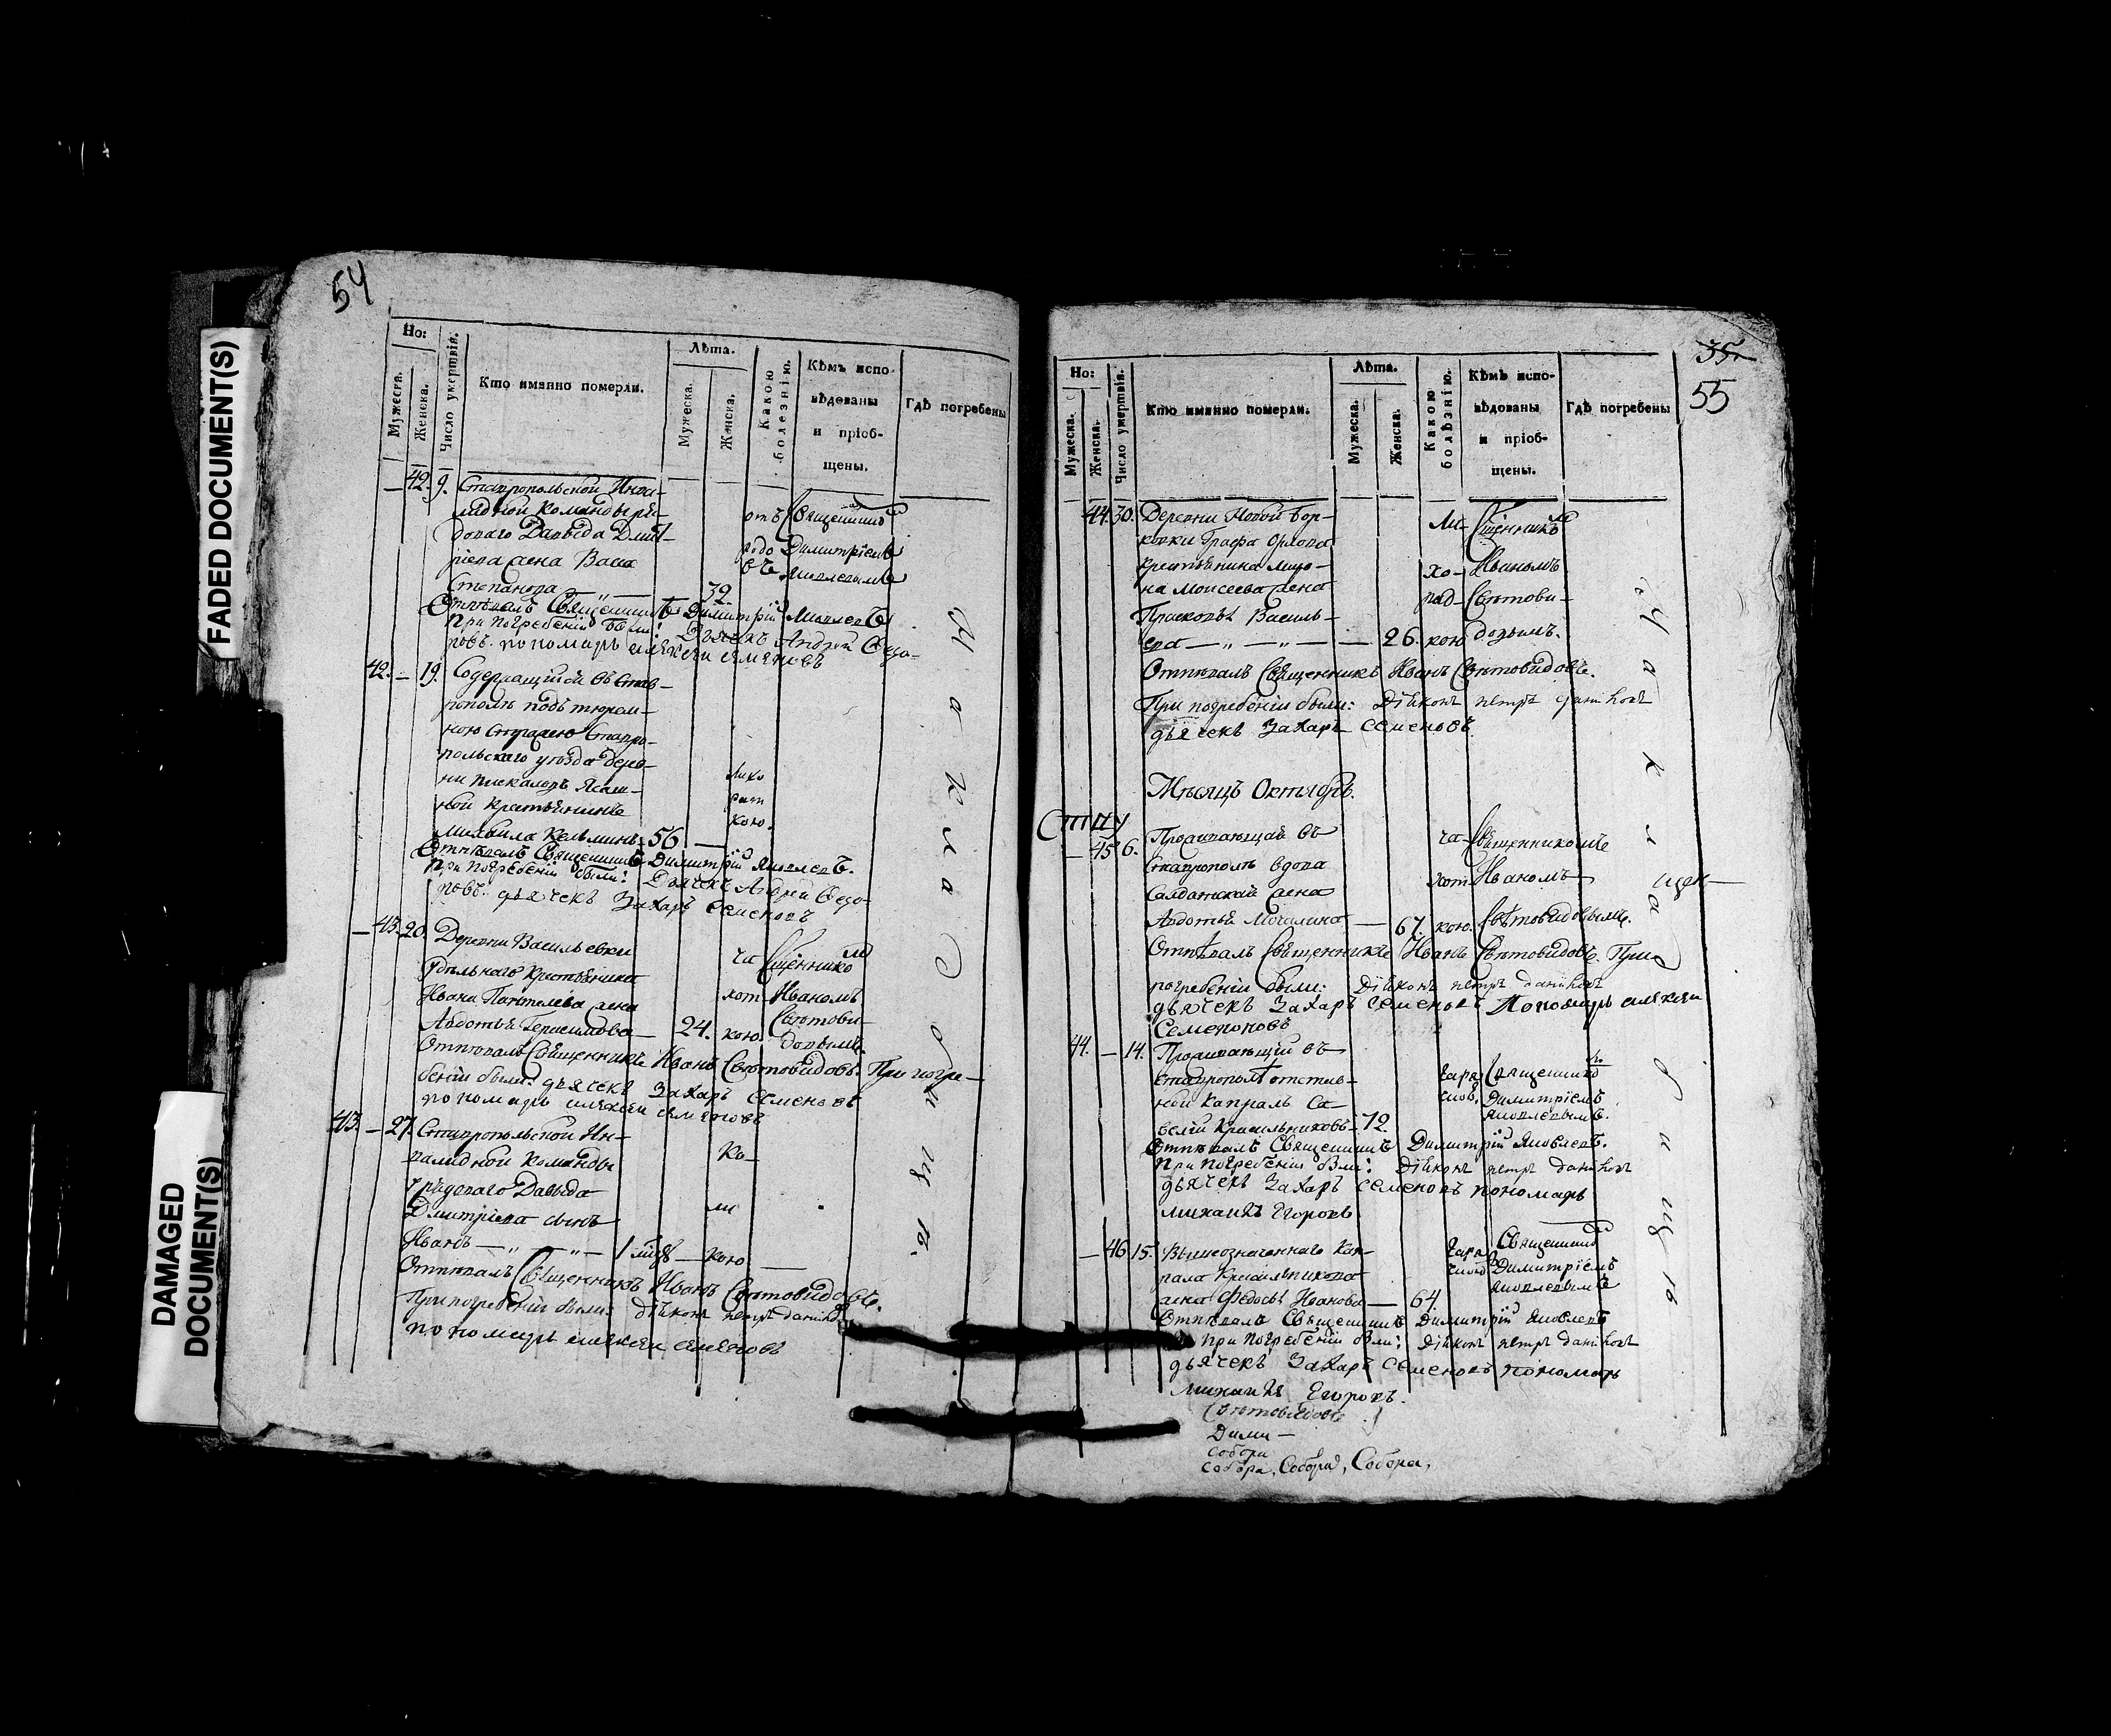 FADED DOCUMENT(S)
DAMAGED DOCUMENT(S)
54
Но:
Мужеска.
Женска.
Число умертвія.
Кто имянно померли.
Лѣта.
Мужеска.
Женска.
Какою болезнію.
Кѣмъ испо-
вѣдованы
и пріоб-
щены.
Гдѣ погребены
— 42. 9. Ставропольской Инва-
лидной команды ря-
доваго Давыда Дмит-
ріева жена Васса
Степанова — „ — 32
отъ
родо
въ
Священником
Димитріемъ
Яковлевымъ
Отпѣвалъ Священникъ Димитрій Яковлевъ
При погребеніи были: Дьячекъ Андрей Ѳедо-
ровъ. пономарь алексеи семеновъ
42. — 19. Содержащійся въ Став-
рополѣ подъ тюрем-
ною стражею Ставро-
польскаго уѣзда дерев-
ни Пискаловъ Ясаш-
ной крестьянинъ
Михайла Кельминъ 56 —
лихо
рат
кою.
Отпѣвалъ Священникъ Димитрій Яковлевъ.
При погребеніи были: Дьячекъ Андрей Ѳедо-
ровъ. дьячекъ Захаръ Семеновъ
— 43. 20. Деревни Васильевки
удѣльнаго крестьянина
Ивана Пантелѣева жена
Авдотья Герасимова — 24.
ча
хот
кою.
Сщѣнником
Иваномъ
Святови-
довымъ.
Отпѣвалъ Священникъ Иванъ Святовидовъ. При погре-
беніи были: дьячекъ Захаръ Семеновъ
пономарь алексеи семеновъ
43. — 27. Ставропольской Ин-
валидной команды
рядоваго Давыда
Дмитріева сынъ
Иванъ — „ — „ — 1 — кою —
Ко-
ли
Отпѣвалъ Священникъ Иванъ Святовидовъ.
При погребеніи были: діякон петръ данилов
пономарь алексеи семеновъ
На кладбищѣ.
35.
55
Но:
Мужеска.
Женска.
Число умертвія.
Кто имянно померли.
Лѣта.
Мужеска.
Женска.
Какою болѣзнію.
Кѣмъ испо-
вѣдованы
и пріоб-
щены.
Гдѣ погребены
— 44. 30. Деревни Новой Бор-
ковки Графа Орлова
крестьянина Миро-
на Моисеева жена
Прасковья Василь-
ева — „ — „ — — 26.
Ли-
хо-
рад-
кою
Сщенником
Иваномъ
Святови-
довымъ.
Отпѣвалъ Священникъ Иванъ Святовидовъ.
При погребеніи были: Діякон петръ данилов
дьячекъ Захаръ Семеновъ.
Мѣсяцъ Октябрь.
— 45 6. Проживающая въ
Ставрополѣ вдова
Салдатская жена
Авдотья Мочалина — 67.
ча-
хот-
кою.
Священникомъ
Иваномъ
Святовидовымъ.
Отпѣвалъ Священникъ Иванъ Святовидовъ. При
погребеніи были: Діякон петръ данилов
дьячекъ Захаръ Семеновъ Пономарь алексеи
Семеновъ
44. — 14. Проживающій въ
Ставрополѣ отстав-
ной Капралъ Са-
велій Красильниковъ 72
Священником
Димитріемъ
Яковлевымъ.
Отпѣвалъ Священникъ Димитрій Яковлевъ.
При погребеніи были: Діякон петръ данилов
дьячекъ Захаръ Семеновъ пономарь
михаилъ Егоровъ
— 46 15. Вышеозначеннаго Кап-
рала Красильникова
жена Федосья Иванова — 64.
Священником
Димитріемъ
Яковлевымъ
Отпѣвалъ Священникъ Димитрій Яковлевъ
При погребеніи были: Діякон петръ данилов
дьячекъ Захаръ Семеновъ пономарь
михаилъ Егоровъ.
Святовидовъ
Дими-
собора
собора, Собора, Собора,
На кладбищѣ